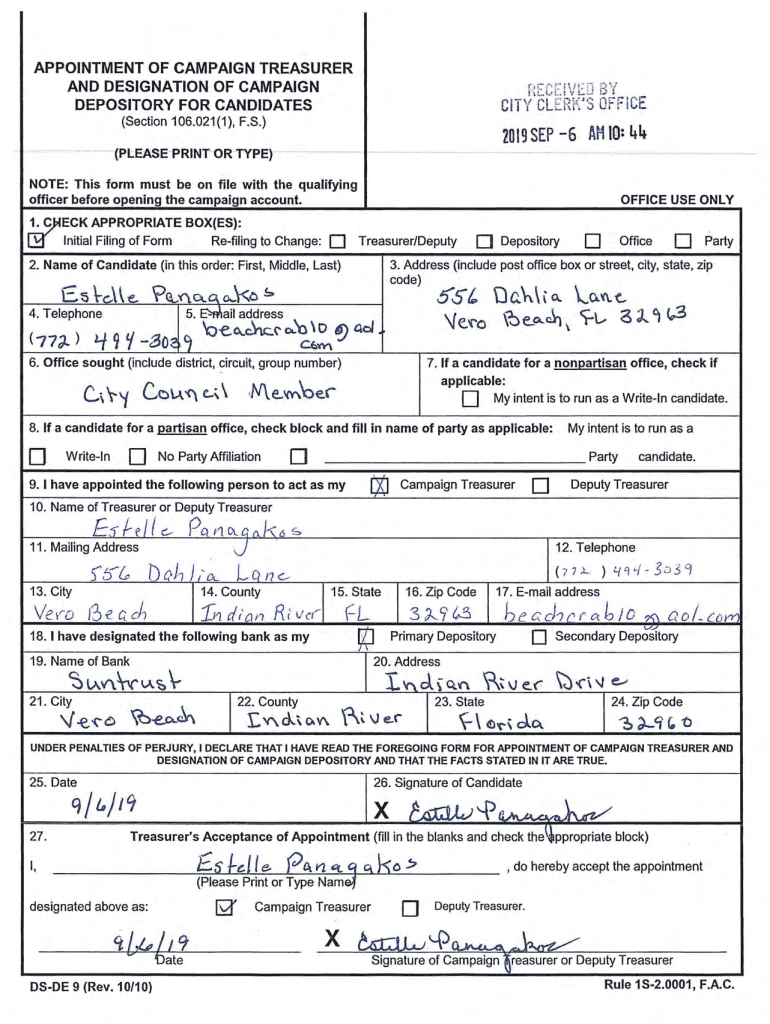 APPOINTMENT OF CAMPAIGN TREASURER
AND DESIGNATION OF CAMPAIGN
DEPOSITORY FOR CANDIDATES
(Section 106.021(1), F.S.)
(PLEASE PRINT OR TYPE)
NOTE: This form must be on file with the qualifying
officer before opening the campaign account.
RECEIVED BY
CITY CLERK'S OFFICE
2019 SEP -6 AM 10: 44
OFFICE USE ONLY
1. CHECK APPROPRIATE BOX(ES):
Initial Filing of Form Re-filing to Change: Treasurer/Deputy Depository Office Party
2. Name of Candidate (in this order: First, Middle, Last)
Estelle Panagakos
3. Address (include post office box or street, city, state, zip
code)
556 Dahlia Lane
Vero Beach, FL 32963
4. Telephone
(772) 494-3039
5. E-mail address
beachcrab10@aol.
com
6. Office sought (include district, circuit, group number)
City Council Member
7. If a candidate for a nonpartisan office, check if
applicable:
My intent is to run as a Write-In candidate.
8. If a candidate for a partisan office, check block and fill in name of party as applicable: My intent is to run as a
Write-In No Party Affiliation Party candidate.
9. I have appointed the following person to act as my Campaign Treasurer Deputy Treasurer
10. Name of Treasurer or Deputy Treasurer
Estelle Panagakos
11. Mailing Address
556 Dahlia Lane
12. Telephone
(772) 494-3039
13. City 14. County 15. State 16. Zip Code 17. E-mail address
Vero Beach Indian River FL 32963 beachcrab10@aol.com
18. I have designated the following bank as my Primary Depository Secondary Depository
19. Name of Bank 20. Address
Suntrust Indian River Drive
21. City 22. County 23. State 24. Zip Code
Vero Beach Indian River Florida 32960
UNDER PENALTIES OF PERJURY, I DECLARE THAT I HAVE READ THE FOREGOING FORM FOR APPOINTMENT OF CAMPAIGN TREASURER AND
DESIGNATION OF CAMPAIGN DEPOSITORY AND THAT THE FACTS STATED IN IT ARE TRUE.
25. Date 26. Signature of Candidate
9/6/19 X Estelle Panagakos
27. Treasurer's Acceptance of Appointment (fill in the blanks and check the appropriate block)
I, Estelle Panagakos , do hereby accept the appointment
(Please Print or Type Name)
designated above as: Campaign Treasurer Deputy Treasurer.
9/6/19 X Estelle Panagakos
Date Signature of Campaign Treasurer or Deputy Treasurer
DS-DE 9 (Rev. 10/10) Rule 1S-2.0001, F.A.C.